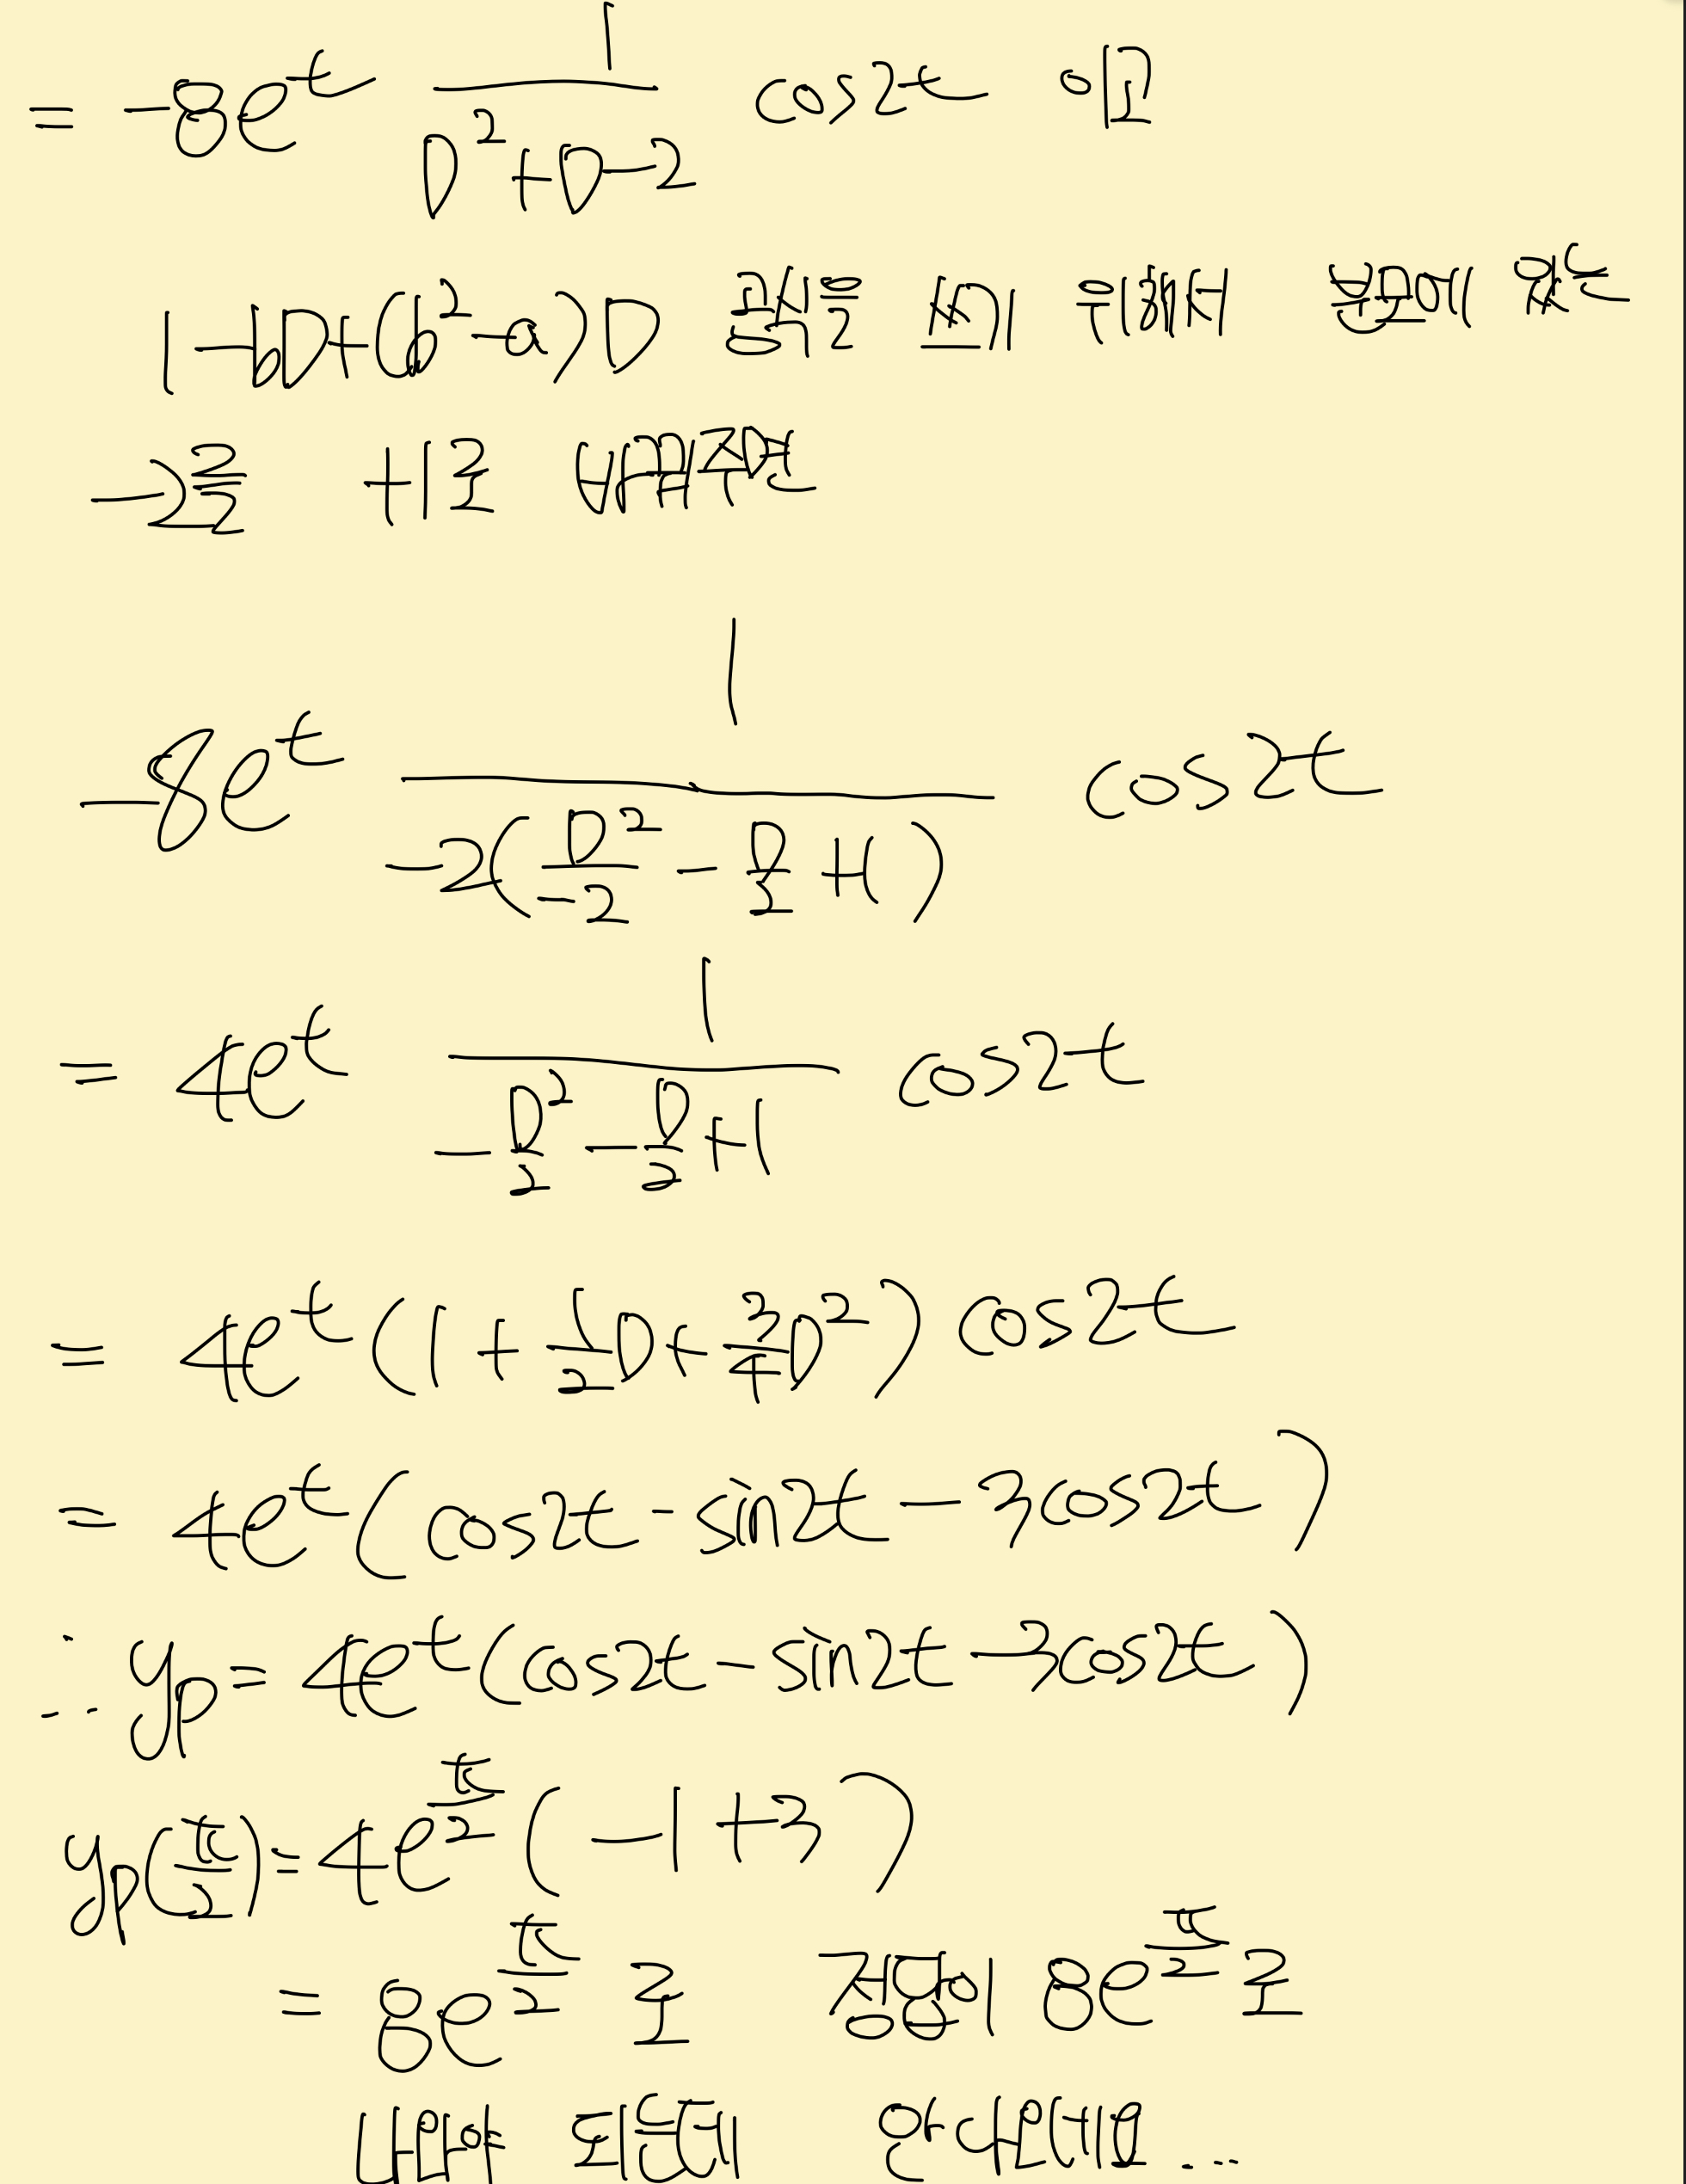 = -8e^t 1/(D²+D-2) cos2t 이고
1-bD+(b²-a)D 공식을 쓰기 위해서 분모에 있는
-2를 +1로 바꿔주면
-8e^t 1/(-2(D²/-2 - D/2 +1)) cos2t
= 4e^t 1/(-D²/2 - D/2 +1) cos2t
= 4e^t (1 + 1/2 D + 3/4 D²) cos2t
= 4e^t (cos2t - sin2t - 3cos2t)
∴ yp = 4e^t (cos2t - sin2t - 3cos2t)
yp(π/2) = 4e^(π/2) (-1+3)
= 8e^(π/2) 로 정답이 8e^(π/2)로
나와 되는데 안 나와요 ...